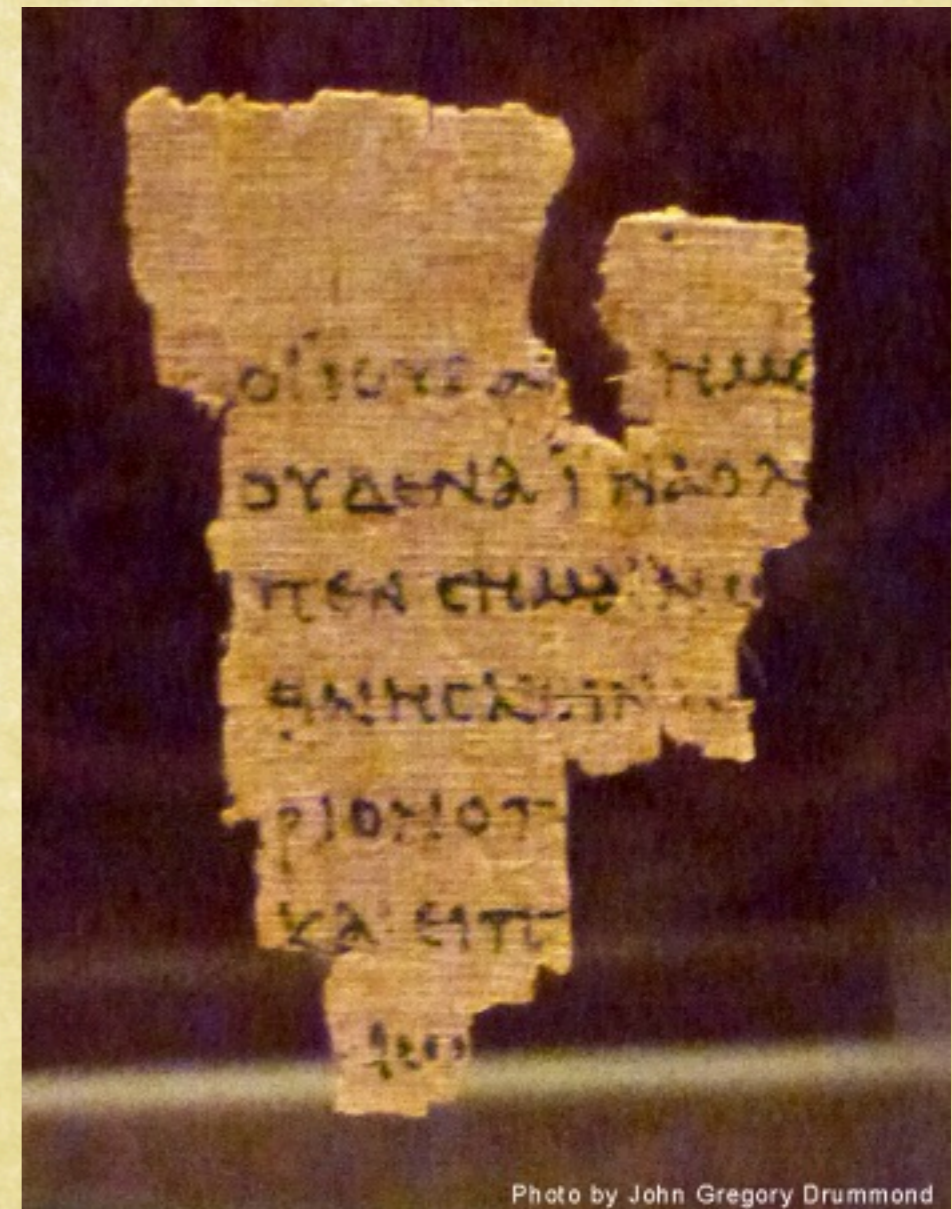 ΟΙ ΙΟΥΔΑΙ ΗΜΕ
ΟΥΔΕΝΑ ΙΝΑΟΛ
ΠΕΝ ΣΗΜΑΙΝΩ
ΘΝΗΣΚΕΙΝ
ΡΙΟΝΟΠ
ΚΑΙ ΕΙΠ
Photo by John Gregory Drummond